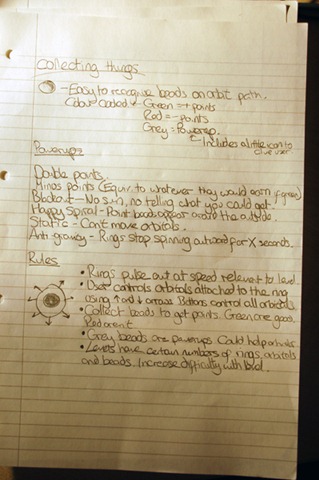 Collecting things
- Easy to recognise beads on orbit path.
Colour coded. Green = + points
Red = - points
Grey = Powerup
Includes a little icon to
clue user
Powerups
Double points.
Minos points (Equiv. to whatever they would earn if green)
Blackout - No sun, no telling what you could get.
Happy Spiral - Point beads appear around the outside.
Static - Can't move orbitals.
Anti gravity - Rings stop spinning outward for X seconds.
Rules
• Rings pulse out at speed relevent to level.
• User controls orbitals attached to the ring
using ↑ and ↓ arrows. Buttons control all orbitals.
• Collect beads to get points. Green are good.
Red arent.
• Grey beads are powerups. Could help or hinder.
• Levels have certain numbers of rings, orbitals
and beads. Increase difficulty with level.